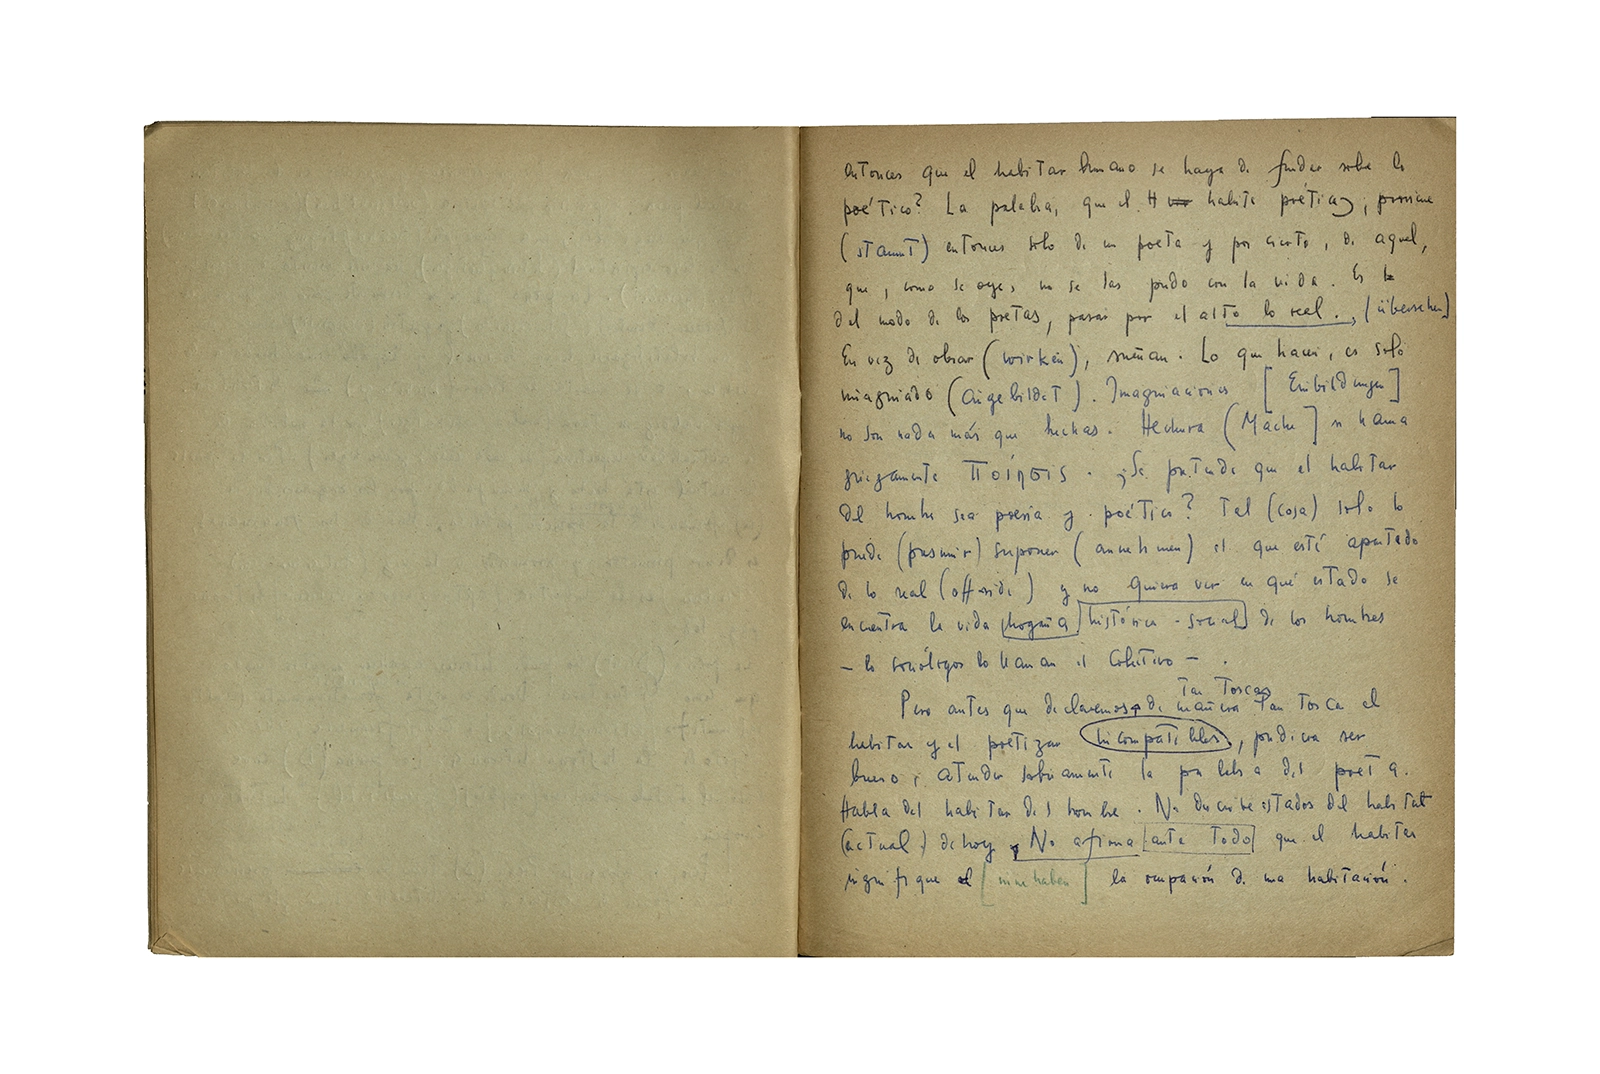 entonces que el habitar humano se haya de fundar sobre lo
poético? La palabra, que el H habita poética, proviene
(stammt) entonces solo de un poeta y por cierto, de aquel,
que, como se oye, no se las pudo con la vida. Es
del modo de los poetas, pasar por el alto lo real. (übersehen]
En vez de obrar (wirken), sueñan. Lo que hacen, es solo
imaginado (eingebildet). Imaginaciones [Einbildungen]
no son nada más que hechas. Hechura (Mache] se llama
griegamente Ποίησις. ¿Se pretende que el habitar
del hombre sea poesía y poético? Tal (cosa) solo lo
puede suponer (annehmen) el que esté apartado
de lo real (offside) y no quiera ver en qué estado se
encuentra la vida hogaña histórica-social de los hombres
– los sociólogos lo llaman el colectivo – .
tan toscas
Pero antes que declaremos de manera tan tosca el
habitar y el poetizar incompatibles, pudiera ser
bueno, atender sobriamente la palabra del poeta.
Habla del habitar del hombre. No describe estados del habitat
(actual) de hoy. No afirma ante todo que el habitar
signifique el [innehaben] la ocupación de una habitación.